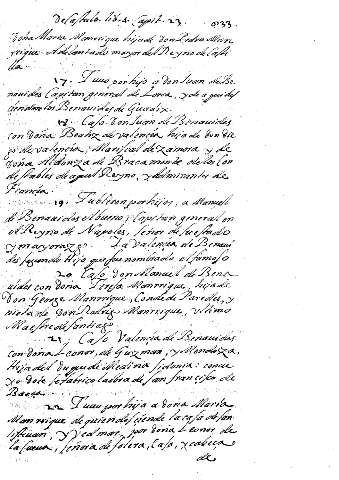 De Castulo lib. 4. Capit. 23. 433
doña Maria Manrrique hija de don Pedro Man
rrique Adelantado mayor del Reyno de Casti
lla.
17. Tuvo por hijo a don Juan de Be
nauides Capitan general de Lorca, y de aqui des
cienden los Benauides de Guadix.
18. Caso don Juan de Benauides
con doña Beatriz de valencia hija de don die
go de valencia, Mariscal de zamora y de
doña Aldonza de Bracamonte de los Con
destables de aquel Reyno, y Almirantes de
Francia.
19. Tubieron por hijos, a Manuel
de Benauides el bueno, Capitan general en
el Reyno de Napoles, señor de su estado
y mayorazgo. La valencia de Benaui
des segundo hijo que fue nominado el famoso
20. Caso don Manuel de Bena
uides con doña Teresa Manrrique, hija de
Don George Manrrique, Conde de Paredes, y
nieta de don Rodrigo Manrrique, vltimo
Maestre de Santiago
21. Caso Valencia de Benauides
con doña Leonor, de Guzman, y Mendoza,
Hija del duque de Medina sidonia: cuyo
y dote se fabrico la obra de san francisco de
Baeza.
22. Tuvo por hija a doña Maria
Manrrique de quien desciende la casa de san
tisteuan, y doña Leonor de
la Cueua, señora de Solera, Casa, y cabeça
de